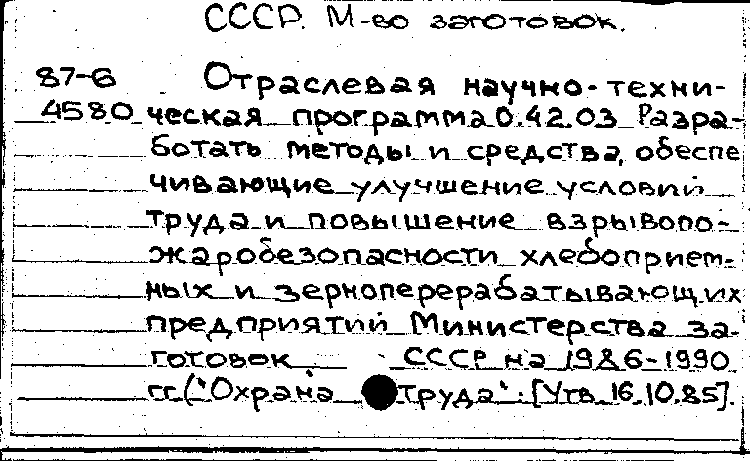 СССР. М-во заготовок.
87-6 Отраслевая научно-техни-
4580 ческая программа 0.42.03 Разра-
ботать методы и средства, обеспе
чивающие улучшение условий
труда и повышение взрывопо-
жаробезопасности хлебоприем-
ных и зерноперерабатывающих
предприятий Министерства за-
готовок СССР на 1986-1990
гг. ("Охрана труда". [Утв. 16.10.85].